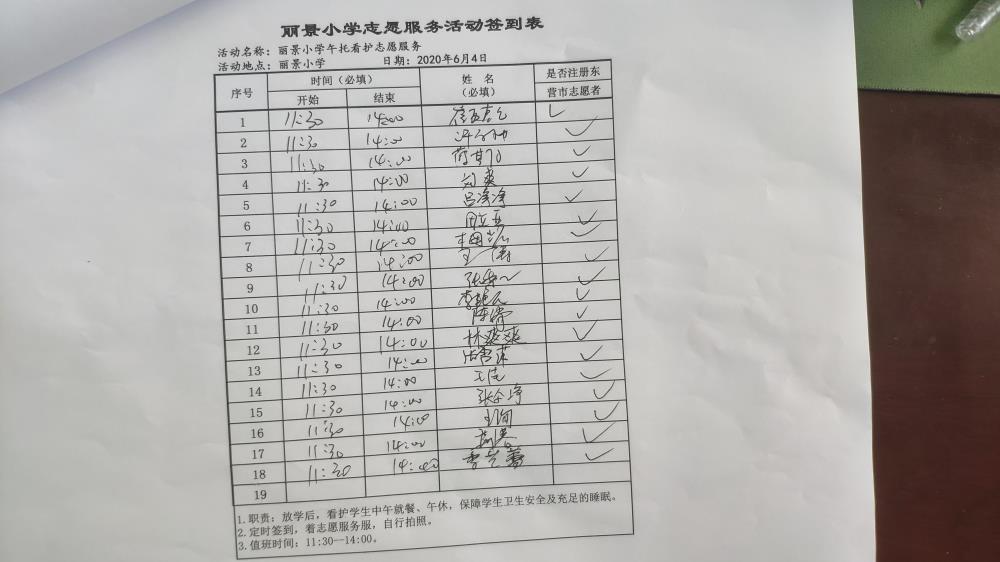 丽景小学志愿服务活动签到表
活动名称：丽景小学午托看护志愿服务
活动地点：丽景小学 日期：2020年6月4日
序号 时间（必填） 姓 名（必填） 是否注册东营市志愿者
开始 结束
1 11:30 14:00 ✓
2 11:30 14:00 ✓
3 11:30 14:00 ✓
4 11:30 14:00 刘爽 ✓
5 11:30 14:00 吕净净 ✓
6 11:30 14:00 ✓
7 11:30 14:00 ✓
8 11:30 14:00 王倩 ✓
9 11:30 14:00 ✓
10 11:30 14:00 ✓
11 11:30 14:00 ✓
12 11:30 14:00 林爽爽 ✓
13 11:30 14:00 ✓
14 11:30 14:00 王佳 ✓
15 11:30 14:00 ✓
16 11:30 14:00 ✓
17 11:30 14:00 ✓
18 11:30 14:00 ✓
19
1.职责：放学后，看护学生中午就餐、午休，保障学生卫生安全及充足的睡眠。
2.定时签到，着志愿服务服，自行拍照。
3.值班时间：11:30--14:00。